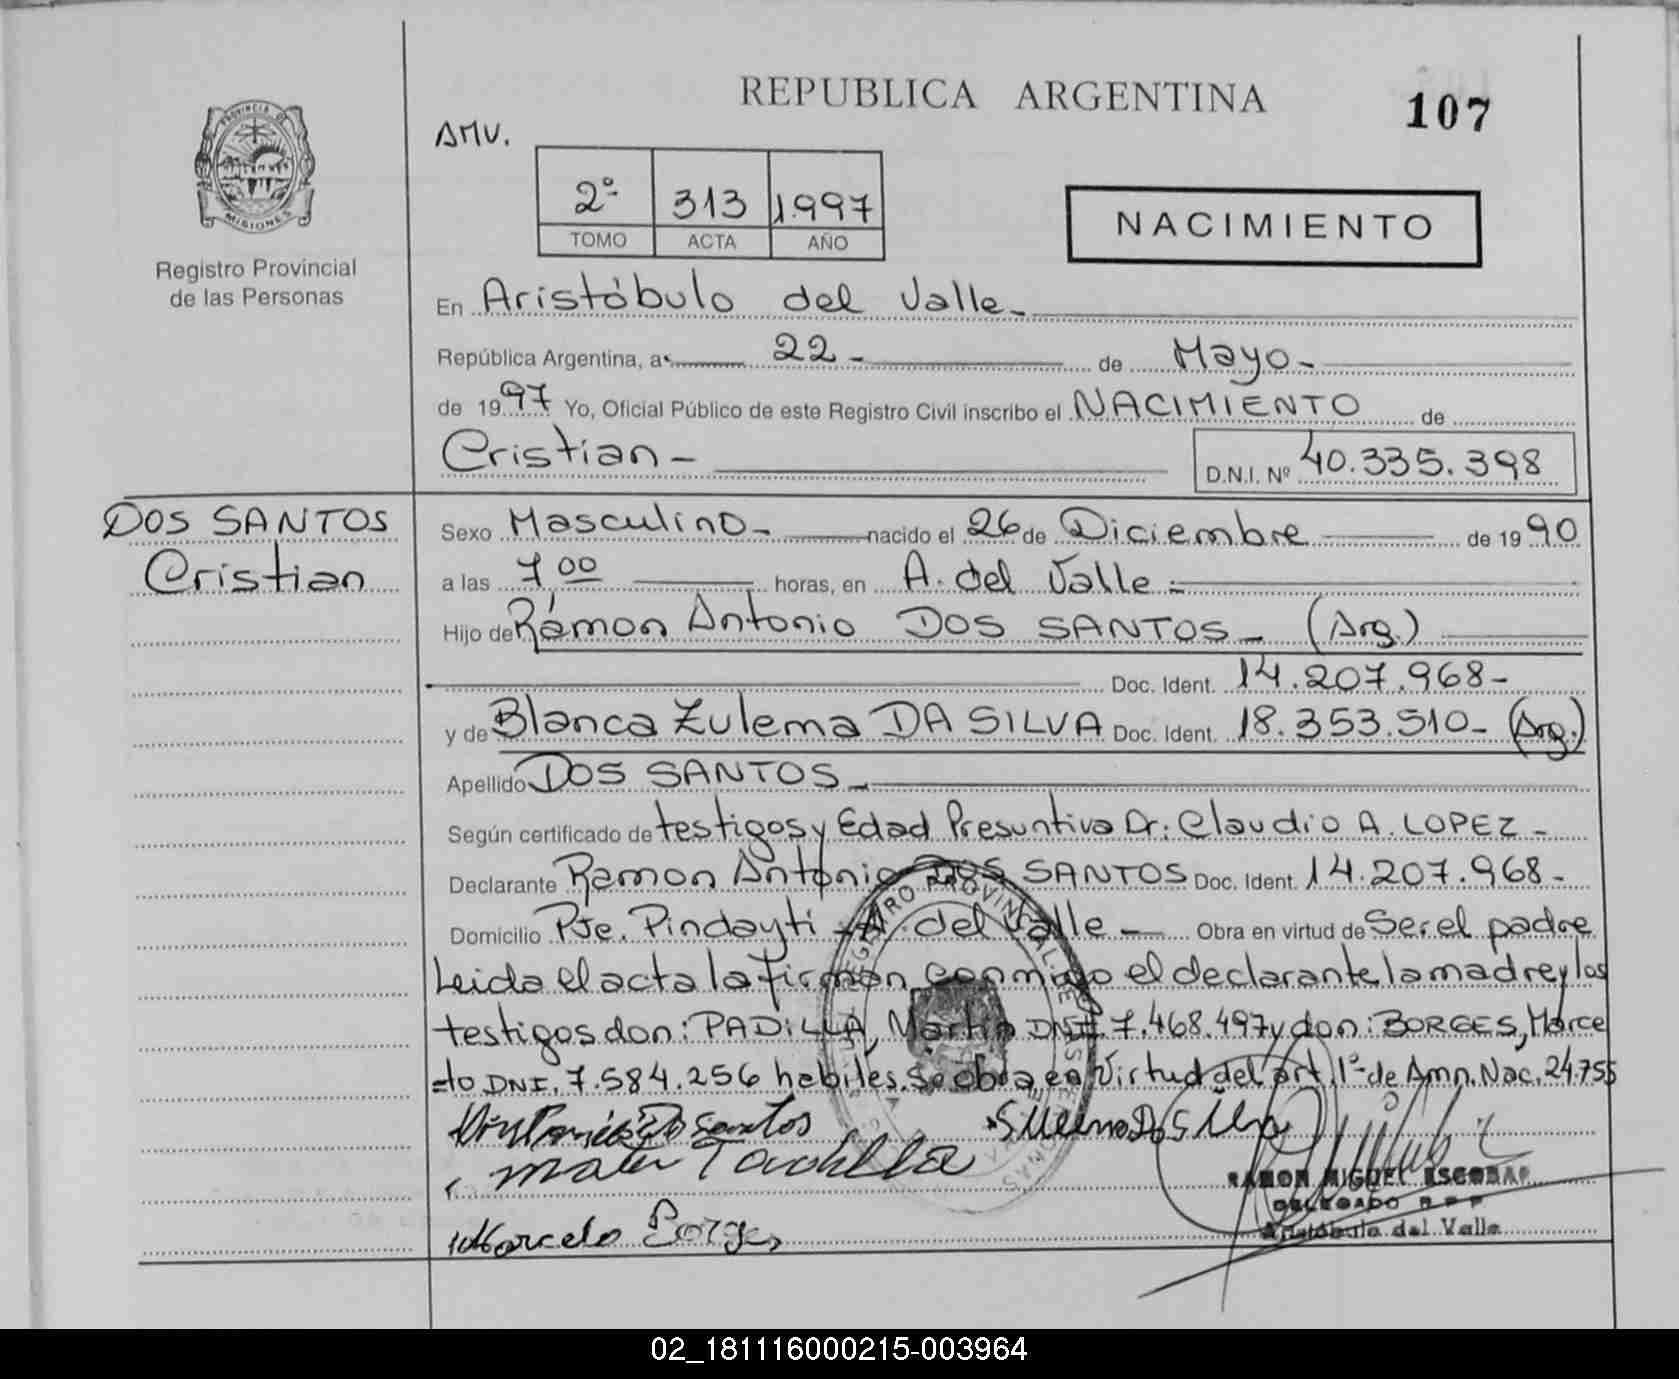 REPUBLICA ARGENTINA
107
AMV.
PROVINCIA DE MISIONES
Registro Provincial
de las Personas
2º 313 1997
TOMO ACTA AÑO
NACIMIENTO
En Aristóbulo del Valle
República Argentina, a 22 - de Mayo -
de 1997 Yo, Oficial Público de este Registro Civil inscribo el NACIMIENTO de
Cristian - D.N.I. Nº 40.335.398
DOS SANTOS
Cristian
Sexo Masculino - nacido el 26 de Diciembre de 1990
a las 7 00 horas, en A. del Valle -
Hijo de Rámon Antonio DOS SANTOS - (Arg.)
Doc. Ident. 14.207.968-
y de Blanca Zulema DA SILVA Doc. Ident. 18.353.510- (Arg.)
Apellido DOS SANTOS -
Según certificado de testigos y Edad Presuntiva Dr: Claudio A. LOPEZ -
Declarante Ramon Antonio DOS SANTOS Doc. Ident. 14.207.968-
Domicilio Pje. Pindayti - A. del Valle - Obra en virtud de Ser el padre
Leida el acta la firman conmigo el declarante la madre y los
testigos don: PADILLA, Martin DNI. 7.468.497 y don: BORGES, Marce
=lo DNI. 7.584.256 habiles. Se obra en Virtud del art 1º de Amn. Nac. 24755
Marcelo Borges
RAMON MIGUEL ESCOBAR
DELEGADO R P P
Aristóbulo del Valle
02_181116000215-003964